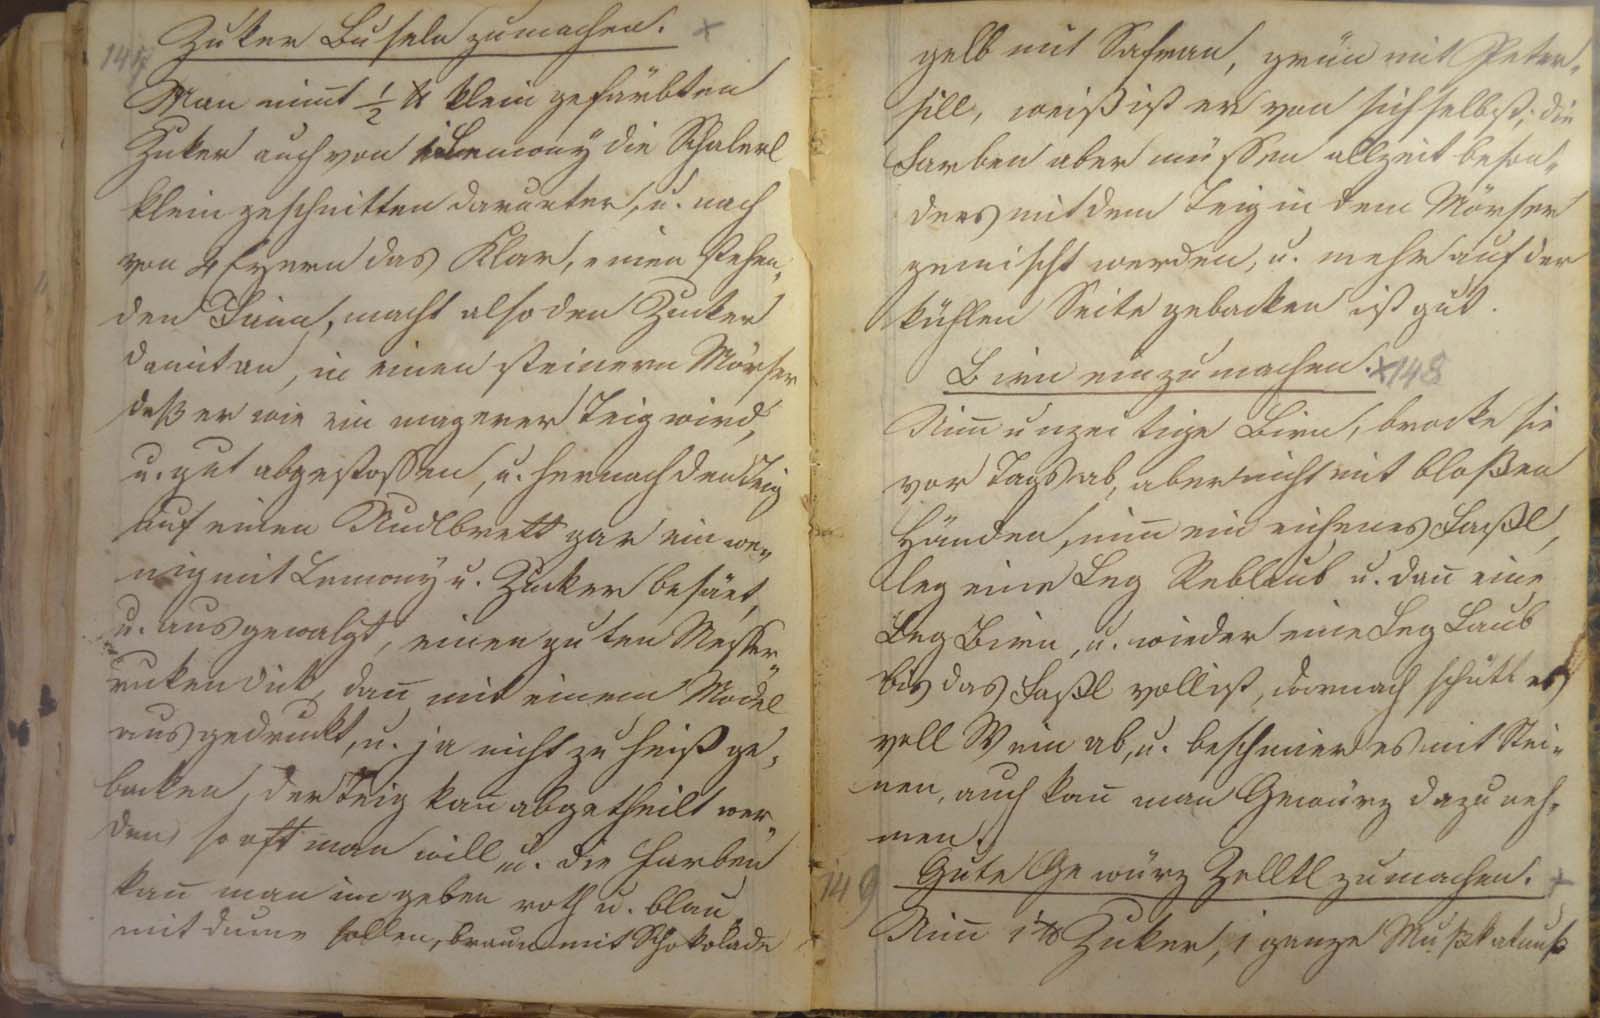 147
Zuker Buseln zumachen. x
Man nim̄t ½ ℔ klein gefärbten
Zuker auch von 1 Lemony die Schalerl
klein geschnitten darunter, u. nach
von 4 Eyern das Klar, einen stehen„
den , macht also den Zucker
damit an, in einen steinern Mörser
daß er wie ein magerer Teig wird,
u. gut abgestossen, u. hernach den Teig
auf einen Nudlbrett gar ein we„
nig mit Lemony u. Zucker besäet,
u. ausgewalgt, einen guten Messer„
ruken dick, dan̄ mit einem Model
ausgedruckt, u. ja nicht zu heiß ge„
backen, der Teig kan̄ abgetheilt wer„
den, so oft man will, u. die Farben
kan̄ man im geben roth u. blau
mit sollen, braun mit Schokolade
gelb mit Safran, grün mit Peter„
sill, weiß ist er von sich selbst; die
Farben aber müssen allzeit beson„
ders mit dem Teig in dem Mörser
gemischt werden, u. mehr auf der
kühlen Seite gebacken ist gut.
Birn einzumachen. x 148
Nim̄ unzeitige Birn, brocke sie
vor Tags ab, aber nicht mit bloßen
Händen, nim̄ ein eichenes Faßl,
leg eine Leg Reblaub u. dan̄ eine
Leg Birn, u. wieder eine Leg Laub
bis das Faßl voll ist, darnach schütt es
voll Wein ab, u. beschwier es mit Stei„
nen, auch kan̄ man Gewürz dazu neh„
men.
149
Gute Gewürz Zelltl zumachen. x
Nim̄ 1 ℔ Zuker, 1 ganze Mußkatnuß